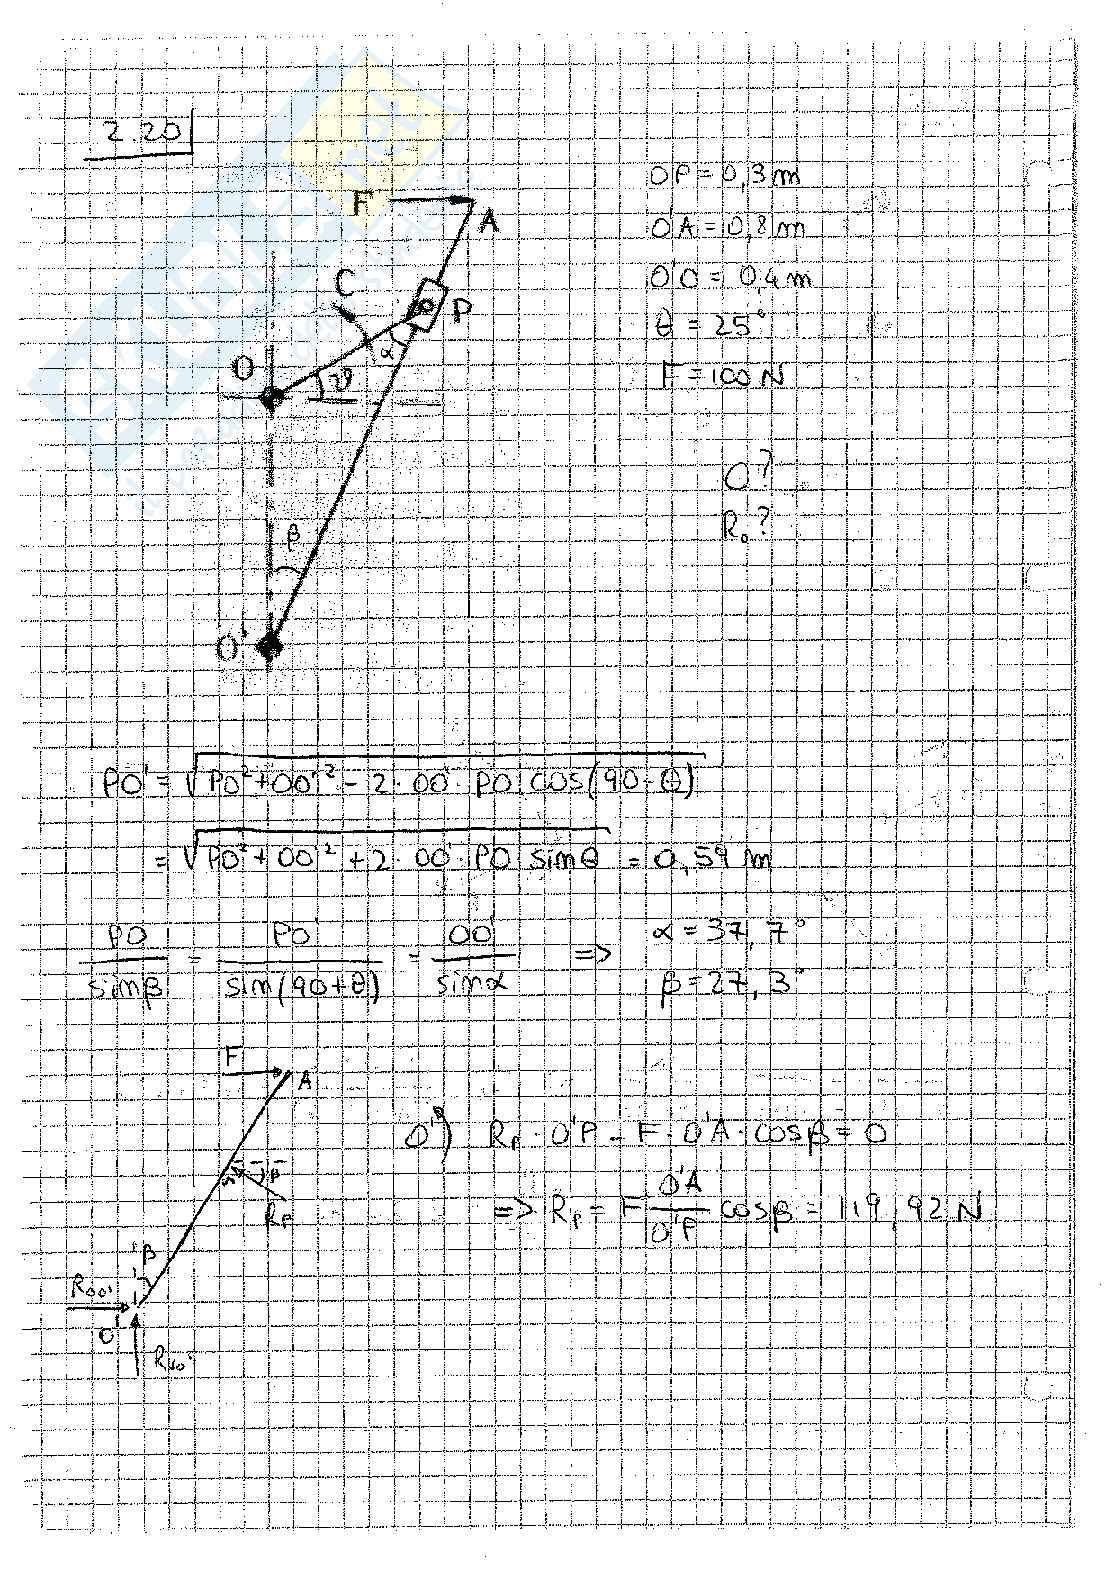 2.20
F
A
OP = 0,3 m
O'A = 0,8 m
O'O = 0,4 m
θ = 25°
F = 100 N
C
P
α
O
θ
O?
R₀?
β
O'
PO' = √(PO² + OO'² - 2 · OO' · PO cos(90-θ))
= √(PO² + OO'² + 2 · OO' · PO sinθ) = 0,59 m
PO/sinβ = PO'/sin(90+θ) = OO'/sinα => α = 37,7°
β = 27,3°
F
A
O') Rₚ · O'P - F · O'A · cosβ = 0
β
Rₚ
=> Rₚ = F O'A/O'P cosβ = 119,92 N
β
O'